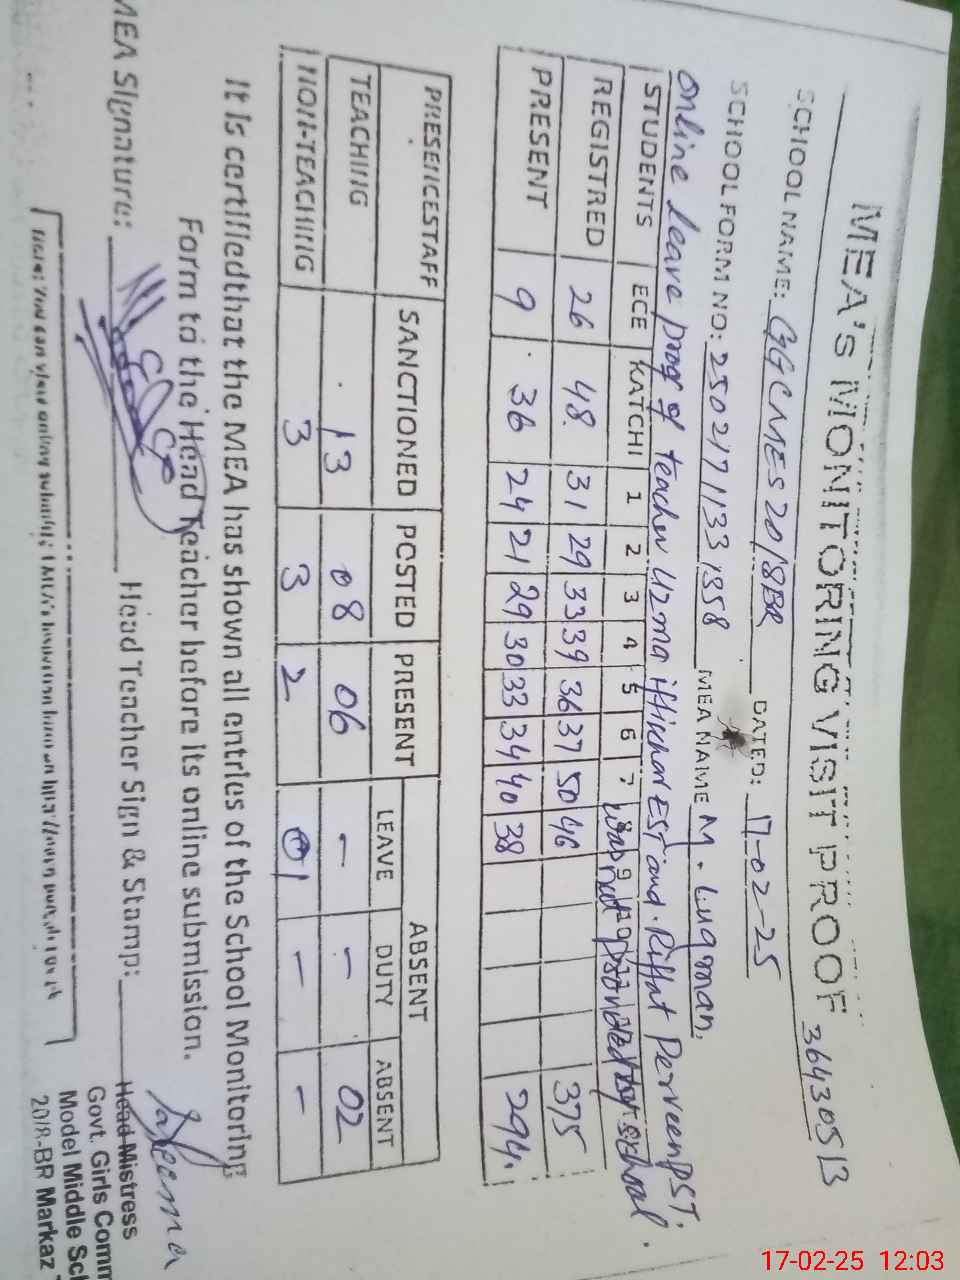 MEA'S MONITORING VISIT PROOF 36430513
SCHOOL NAME: GGCMES 2018BR DATED: 17-02-25
SCHOOL FORM NO: 25021711331358 MEA NAME M. Luqman.
online leave proof of teacher Uzma iftikhar EST and Riffat Perveen PST.
was not provided by school.
STUDENTS ECE KATCHI 1 2 3 4 5 6 7 8 9
REGISTRED 26 48 31 29 33 39 36 37 50 46 375
PRESENT 9 36 24 21 29 30 33 34 40 38 294.
PRESENCESTAFF SANCTIONED POSTED PRESENT ABSENT
LEAVE DUTY ABSENT
TEACHING 13 08 06 - - 02
NON-TEACHING 3 3 2 01 - -
It is certifiedthat the MEA has shown all entries of the School Monitoring
Form to the Head Teacher before its online submission.
MEA Signature: Head Teacher Sign & Stamp:
Head Mistress
Govt. Girls Comm
Model Middle Sch
2018-BR Markaz
17-02-25 12:03